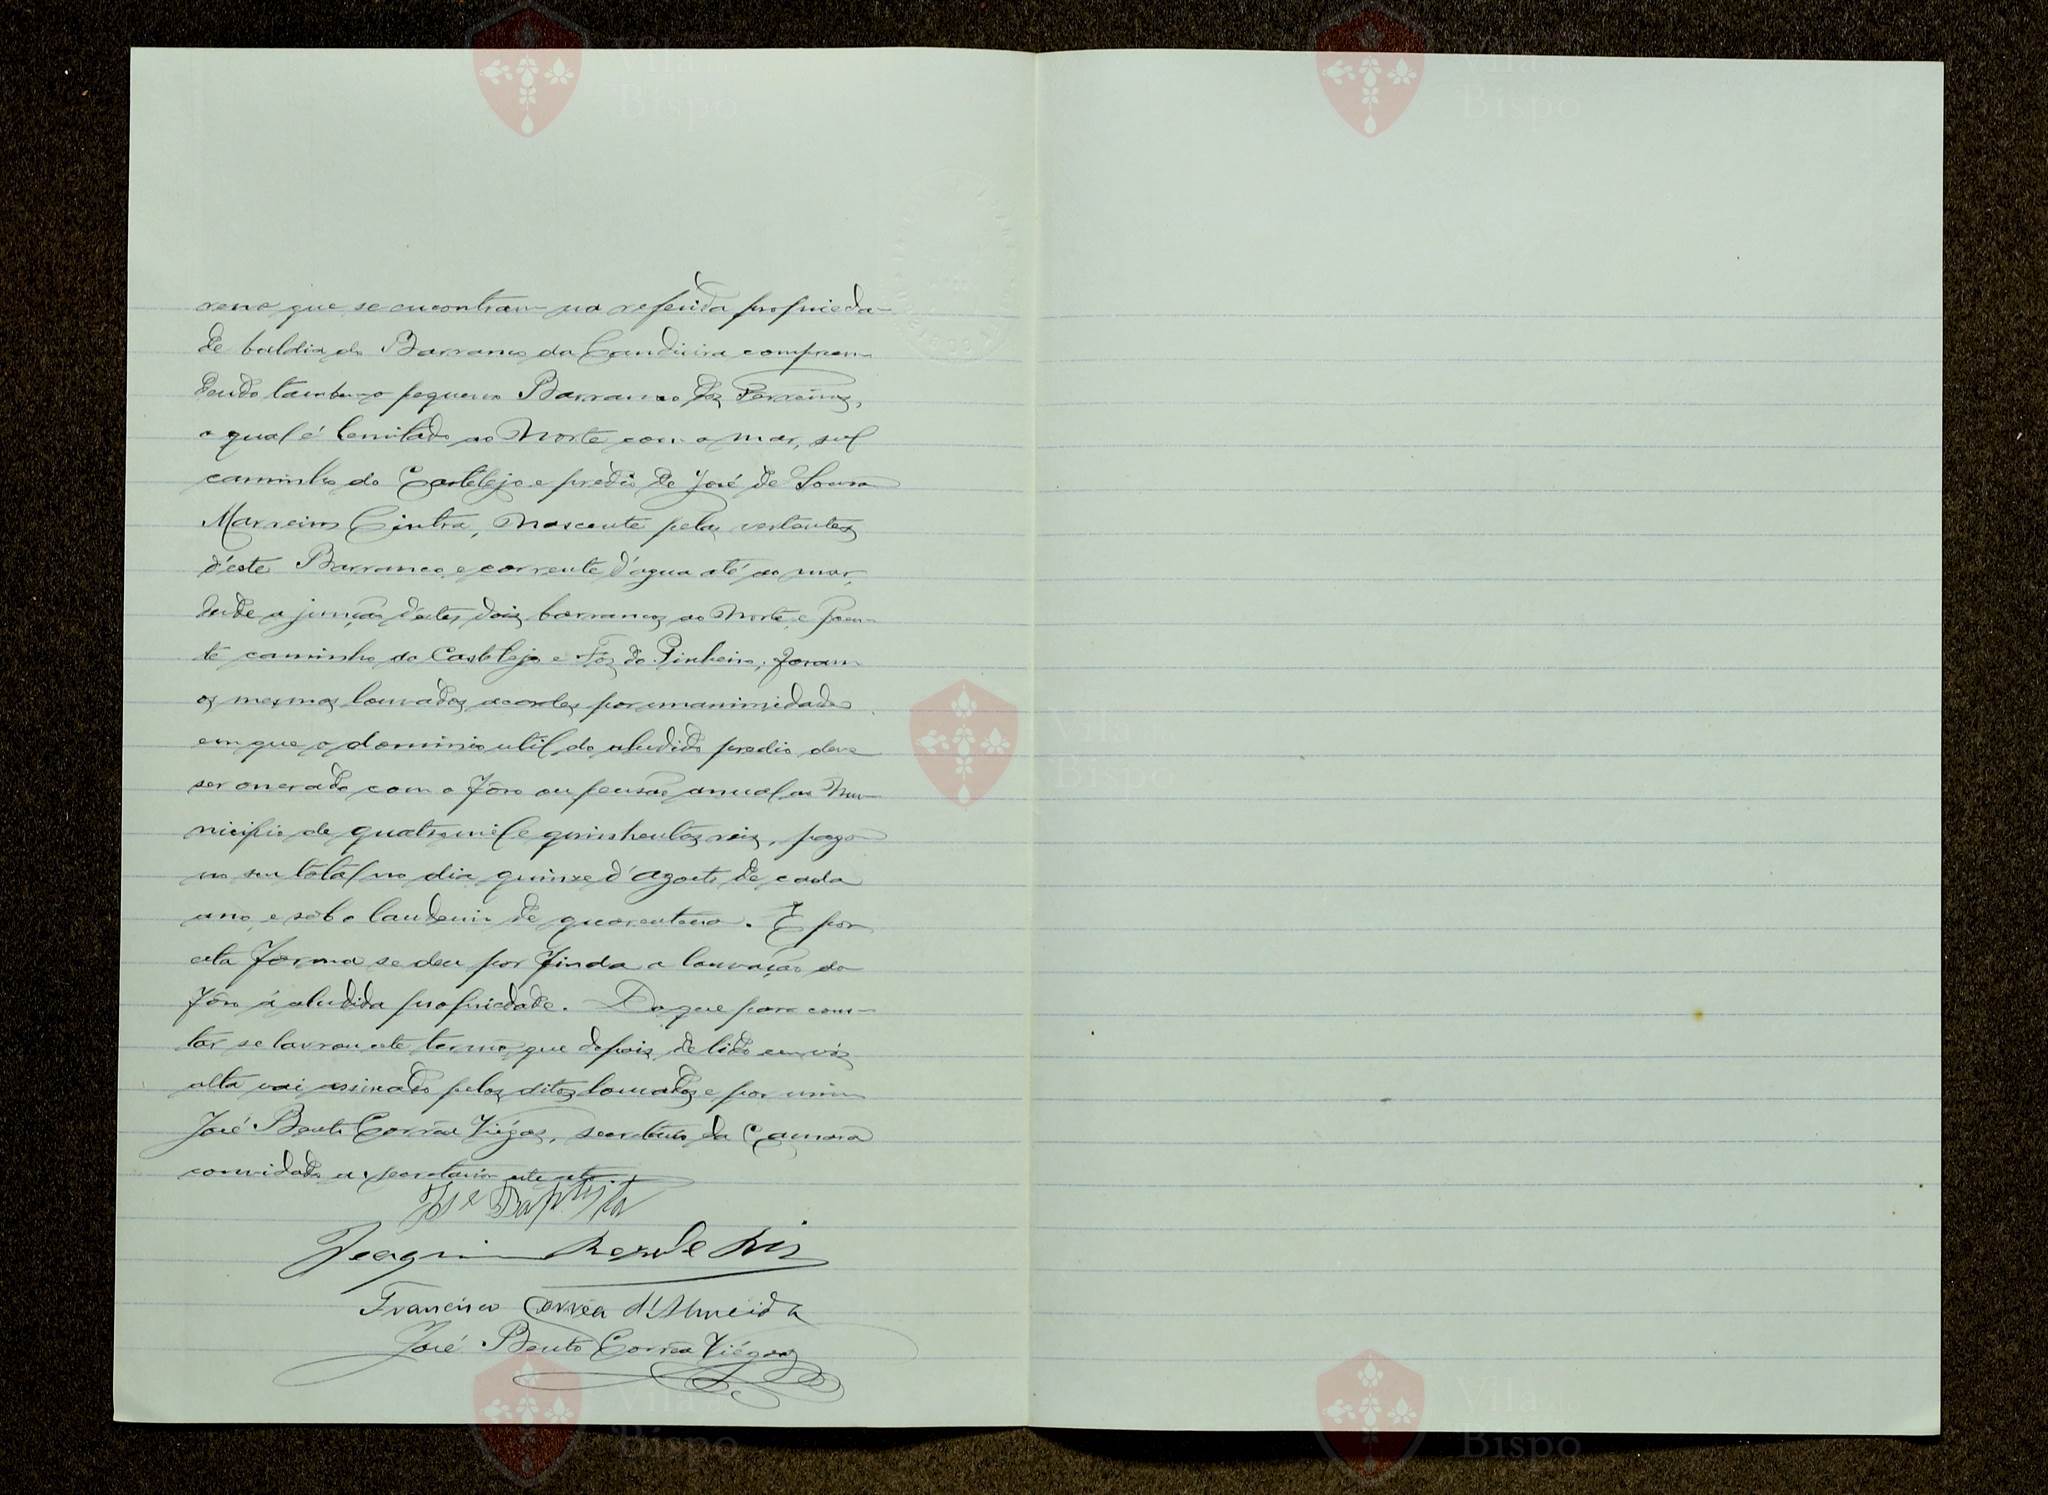 reno que se encontram na referida proprieda-
de baldia do Barranco da Candieira compreen-
dendo tambem o pequeno Barranco dos Ferreiros,
o qual é lemitado ao Norte com o mar, sul
caminho do Castelejo e predio de José de Sousa
Marreiros Cintra, Nascente pelas vertentes
d'este Barranco e corrente d'agua até ao mar,
desde a junção d'estes dois barrancos ao Norte e poen-
te caminho do Castelejo e Foz do Pinheiro, foram
os mesmos louvados acordes por unanimidade
em que o dominio util do aludido predio deve
ser onerado com o fôro ou pensão anual ao Mu-
nicipio de quatro mil e quinhentos reis, pagos
no seu total no dia quinze d'Agosto de cada
ano, e sob o laudemio de quarentena. E por
esta forma se deu por finda a louvação do
fôro á aludida propriedade. Do que para cons-
tar se lavrou este termo, que depois de lido em vóz
alta vai assinado pelos ditos louvados e por mim
José Bento Corrêa Viégas, secretario da Camara
convidado a secretariar este ato.
José Baptista
Joaquim Reis
Francisco Corrêa d'Almeida
José Bento Corrêa Viégas
Vila do
Bispo
Vila do
Bispo
Vila do
Bispo
Vila do
Bispo
Vila do
Bispo